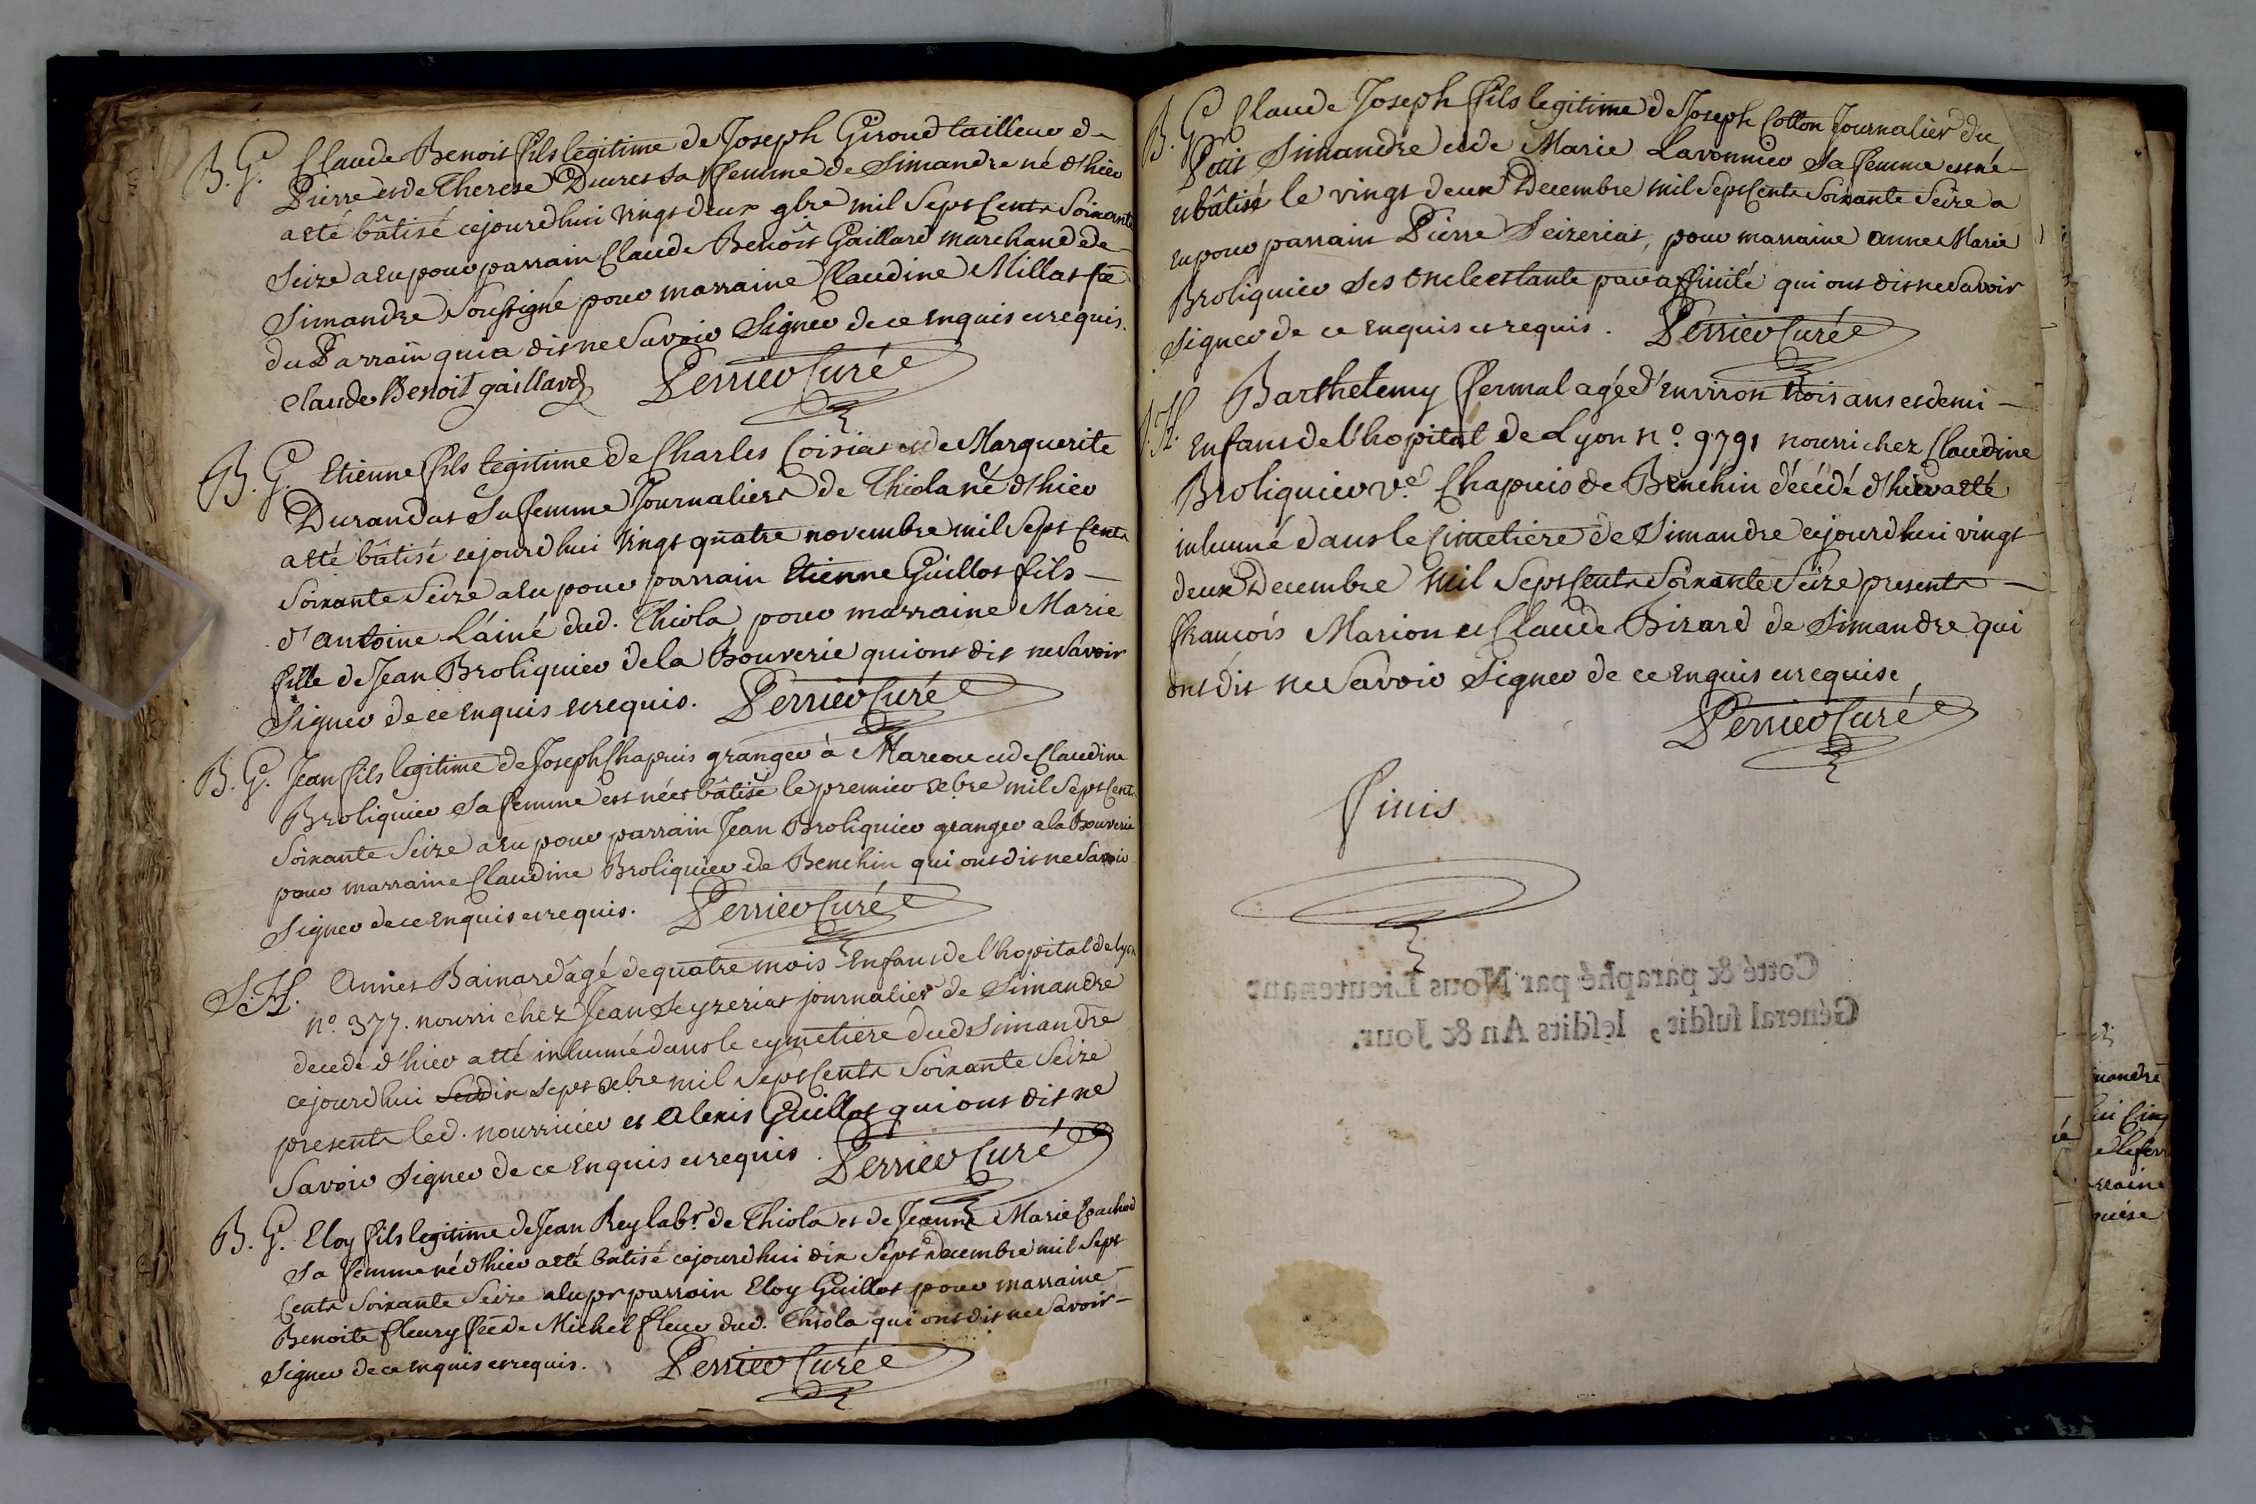 B. G. Claude Benoit fils legitime de Joseph Giroud tailleur d-
Pierre et de Therese Ducret sa femme de Simandre né d'hier
a été bâtisé cejourdhui vingt deux 9bre mil Sept Cents Soixante
Seize a eu pour parrain Claude Benoît Gaillard marchand de
Simandre Soussigné pour marraine Claudine Millat fe
du Parrain qui a dit ne Savoir Signer de ce enquis et requis.
Claude Benoit gaillard Perrier Curé
B. G. Etienne fils legitime de Charles Coisiat et de Marguerite
Durandat Sa femme Journaliers de Thiola né d'hier
a été bâtisé cejourdhui vingt quatre novembre mil Sept Cents
Soixante Seize a eu pour parrain Etienne Guillot fils
d'antoine L'ainé dud. Thiola pour marraine Marie
fille de Jean Broliquier de la Bouverie qui ont dit ne Savoir
Signer de ce enquis et requis. Perrier Curé
B. G. Jean fils legitime de Joseph Chapuis granger à et de Claudine
Broliquier Sa femme est né et bâtisé le premier Xebre mil Sept Cents
Soixante Seize a eu pour parrain Jean Broliquier granger a la Bouverie
pour marraine Claudine Broliquier de Benchin qui ont dit ne Savoir
Signer de ce enquis et requis. Perrier Curé
S. H. Annet Bainard âgé de quatre mois Enfant de l'hopital de Lyon
n° 377. nourri chez Jean Seyzeriat journalier de Simandre
decedé d'hier a été inhumé dans le cymetiere dud Simandre
cejourdhui dix Sept Xebre mil Sept Cents Soixante Seize
presents led. nourricier et Alexis Guillot qui ont dit ne
Savoir Signer de ce Enquis et requis. Perrier Curé
B. G. Eloy fils legitime de Jean Rey labr. de Thiola et de Jeanne Marie
Sa femme né d'hier a été bâtisé cejourdhui dix Sept Decembre mil Sept
Cents Soixante Seize a eu pr parrain Eloy Guillot pour marraine
Benoite fleury fee de Michel fleur dud. Thiola qui ont dit ne Savoir
Signer de ce enquis et requis. Perrier Curé
B. G. Claude Joseph fils legitime de Joseph Cotton Journalier du
Petit Simandre et de Marie Lavonnier Sa femme est né
et bâtisé le vingt deux Decembre mil Sept Cents Soixante Seize a
eu pour parrain Pierre Seizeriat, pour marraine Anne Marie
Broliquier Ses Oncle et tante par affinité qui ont dit ne Savoir
Signer de ce enquis et requis. Perrier Curé
S. H. Barthelemy fermal agé d'environ trois ans et demi
Enfant de l'hopital de Lyon n° 9791 nourri chez Claudine
Broliquier ve. Chapuis de Benchin décédé d'hier a été
inhumé dans le Cimetiere de Simandre cejourdhui vingt
deux Decembre mil Sept Cents Soixante Seize presents
françois Marion et Claude Bizard de Simandre qui
ont dit ne Savoir Signer de ce enquis et requise
Perrier Curé
finis
Cotté & paraphé par Nous Lieutenant
Géneral susdit, lesdits An & Jour.